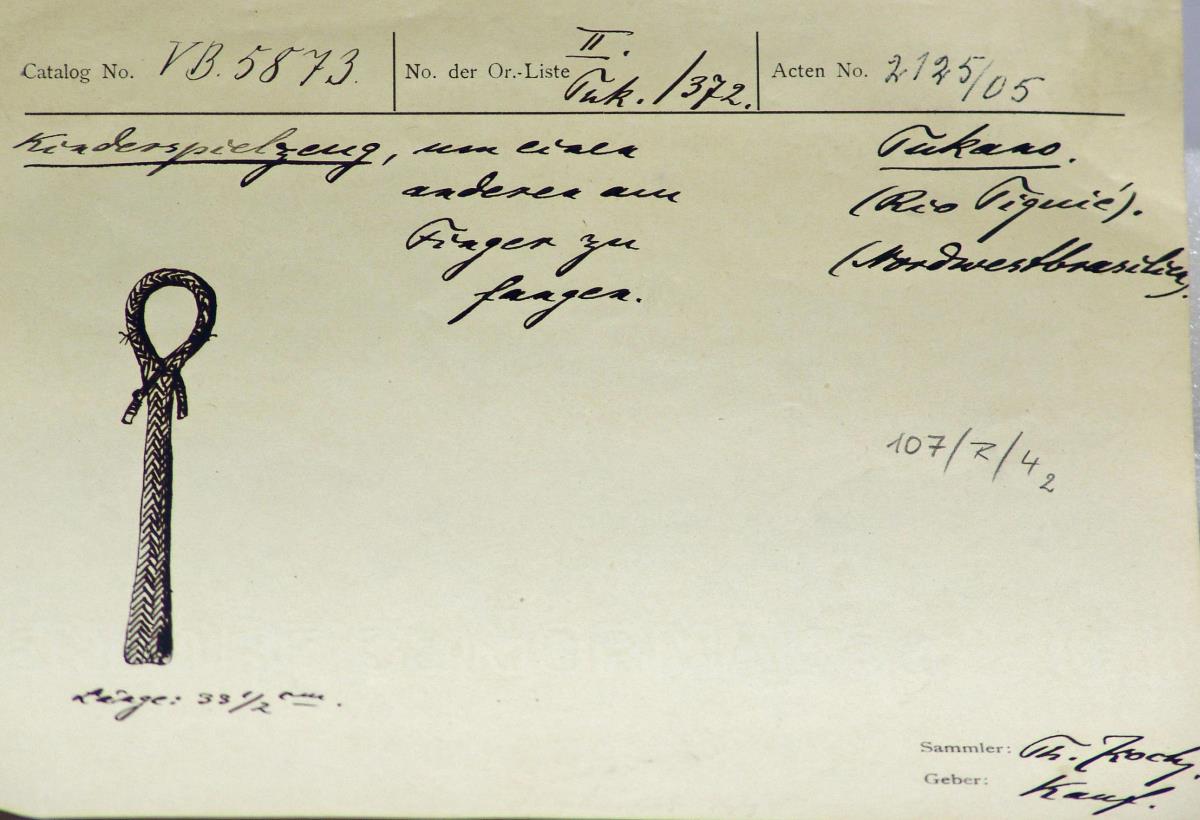 Catalog No. VB. 5873. No. der Or.-Liste II. Tuk. /372. Acten No. 2125/05
Kinderspielzeug, um einen
anderen am
Finger zu
fangen.
Tukano.
(Rio Tiquié).
(Nordwestbrasilien).
107/R/4 2
Länge: 33 1/2 cm.
Sammler: Th. Koch.
Geber: Kauf.